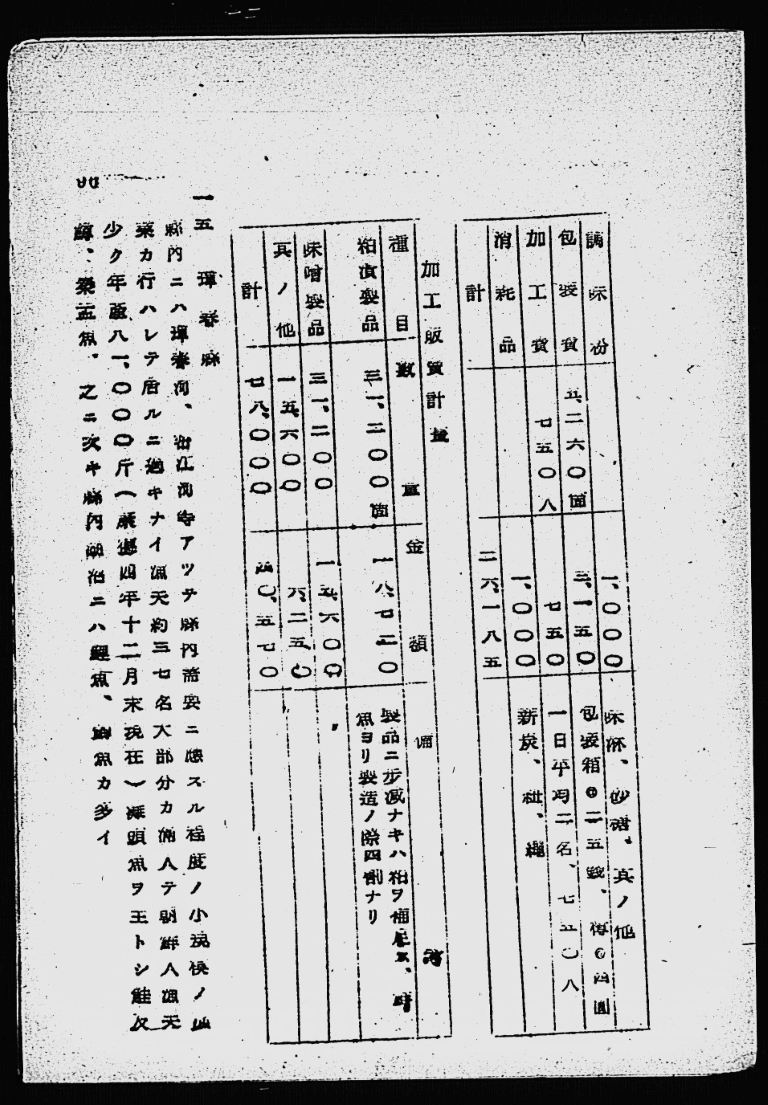 調味粉 一、〇〇〇 味淋、砂糖、其ノ他
包装費 五、二六〇箇 三、一五〇 包装箱
加工賃 七五〇人 七五〇 一日平均二名、七五〇人
消耗品 一、〇〇〇 新炭、縄
計 二六、一八五
加工販賣計畫
種目 數量 金額 備
粕漬製品 三一、二〇〇箇 一八、七二〇 製品ニ歩減ナキハ粕ヲ補足ス、
魚ヨリ製造ノ際四割ナリ
味噌製品 三一、二〇〇 一五、六〇〇
其ノ他 一五、六〇〇 六、二五〇
計 七八、〇〇〇 四〇、五七〇
一五 琿春縣
縣内ニハ琿春河、密江河等アツテ縣内需要ニ應スル程度ノ小規模ノ漁
業カ行ハレテ居ルニ過キナイ漁夫約三七名大部分カ滿人テ朝鮮人漁夫
少ク年産八一、〇〇〇斤(康徳四年十二月末現在)ヲ主トシ鮭及
鱒、之ニ次キ縣内湖沼ニハ鯉魚、鯽魚カ多イ